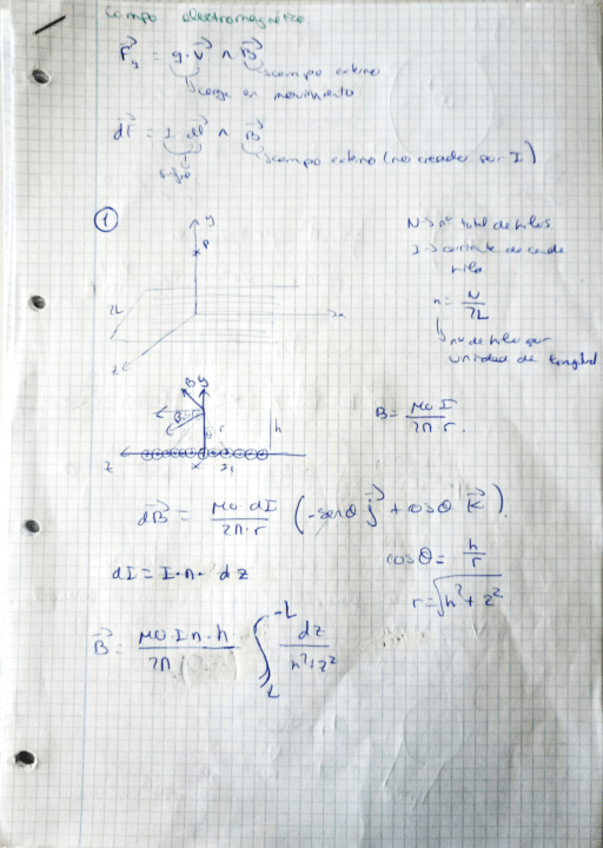 Campo electromagnético
F⃗q = q · v⃗ ∧ B⃗
campo externo
carga en movimiento
dF⃗ = I · dl⃗ ∧ B⃗
campo externo (no creado por I)
1
y
P
2L
x
z
N → nº total de hilos
I → corriente de cada
hilo
n = N/2L
nº de hilos por
unidad de longitud
B y
θ r h
z x
B = μ0 I / 2π r.
dB⃗ = μ0 · dI / 2π · r (-senθ j⃗ + cosθ k⃗).
cosθ = h/r
dI = I · n · dz
r = √(h² + z²)
B⃗ = μ0 · I n · h / 2π ∫_L^-L dz / h² + z²